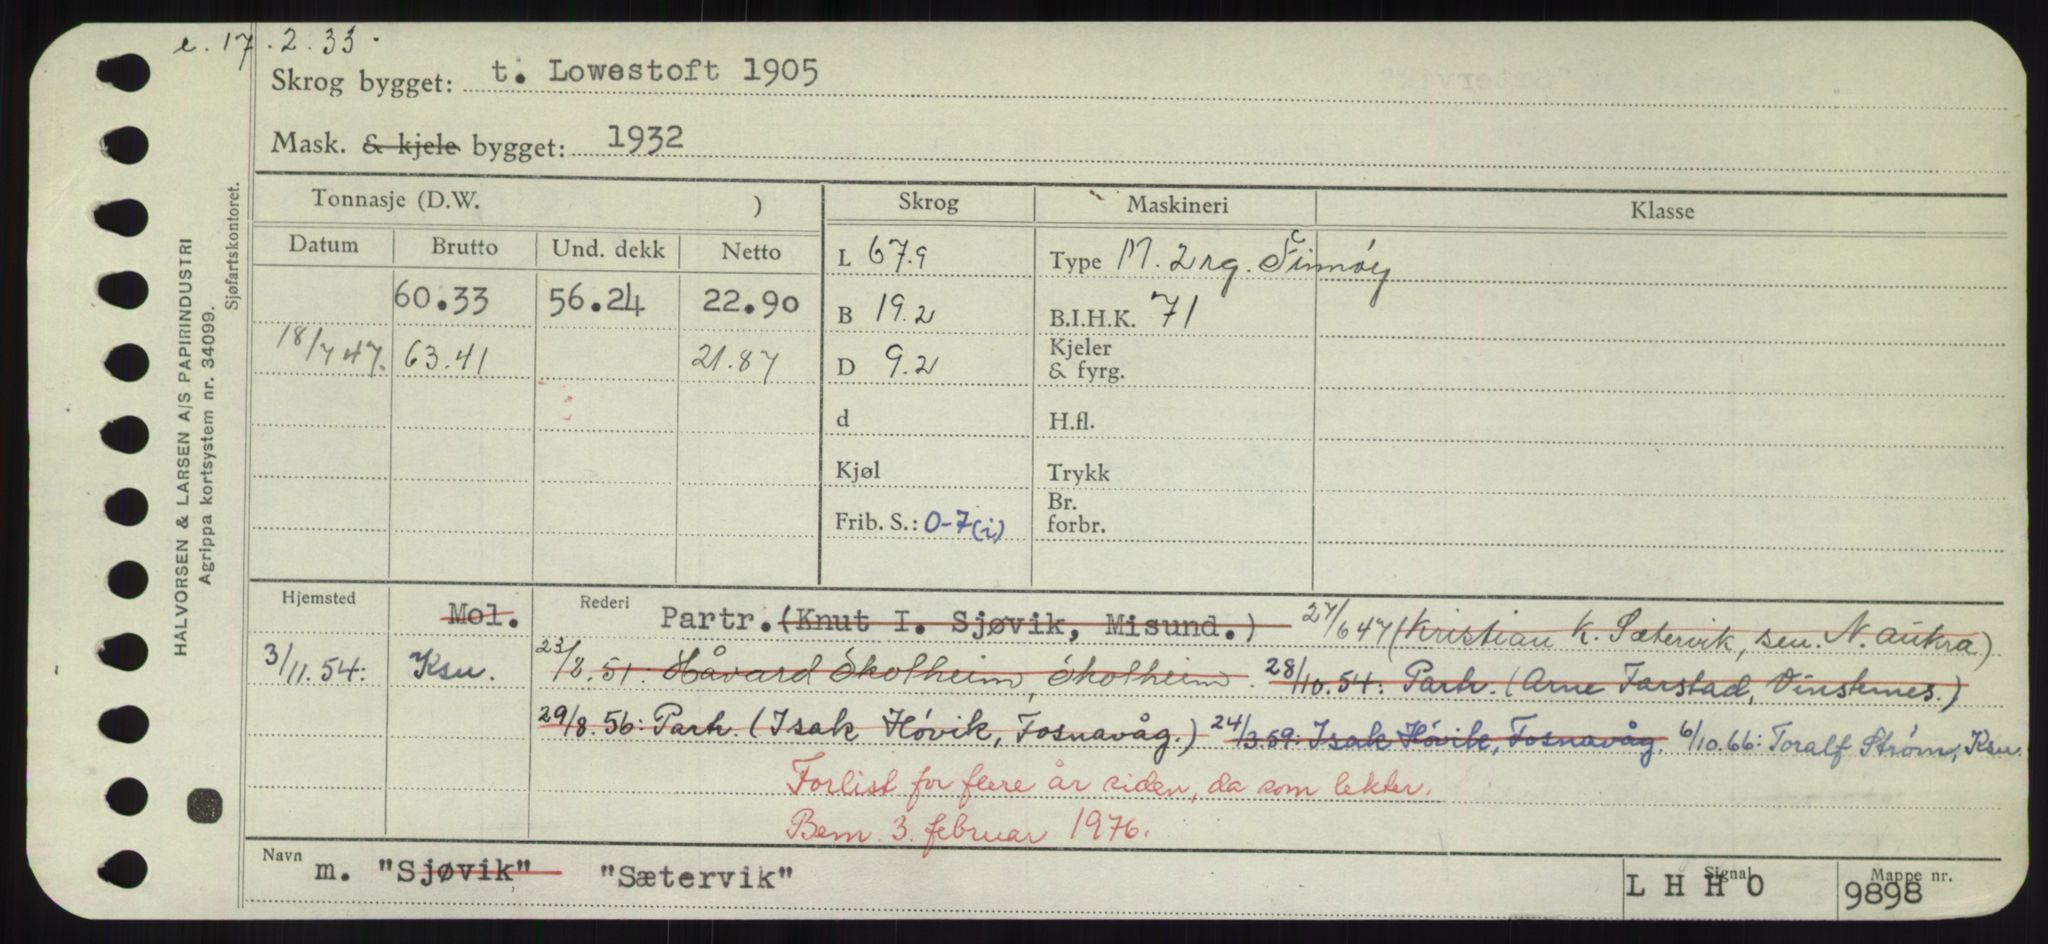 e. 17.2.33.
Skrog bygget: t. Lowestoft 1905
Mask. & kjele bygget: 1932
HALVORSEN & LARSEN A/S PAPIRINDUSTRI
Agrippa kortsystem nr. 34099.
Sjøfartskontoret.
Tonnasje (D.W. ) Skrog Maskineri Klasse
Datum Brutto Und. dekk Netto
L 67.9 Type M. 2 rg. Finnøy
60.33 56.24 22.90
B 19.2 B.I.H.K. 71
18/7 47. 63.41 21.87
D 9.2 Kjeler & fyrg.
d H.fl.
Kjøl Trykk
Frib. S.: 0-7(i) Br. forbr.
Hjemsted Mol. Rederi Partr. (Knut I. Sjøvik, Misund.) 27/6 47 (Kristian K. Sætervik, sen. N. Aukra)
3/11.54: Ksu. 23/8.51. Håvard Skolheim, Skolheim. 28/10.54: Partr. (Arne Farstad, Vinsternes.)
29/8.56: Partr. (Isak Høvik, Fosnavåg.) 24/3.59: Isak Høvik, Fosnavåg. 6/10.66: Toralf Strøm, Ksu.
Forlist for flere år siden, da som lekter.
Bem. 3. februar 1976.
Navn m. "Sjøvik" "Sætervik" Signal L H H O Mappe nr. 9898